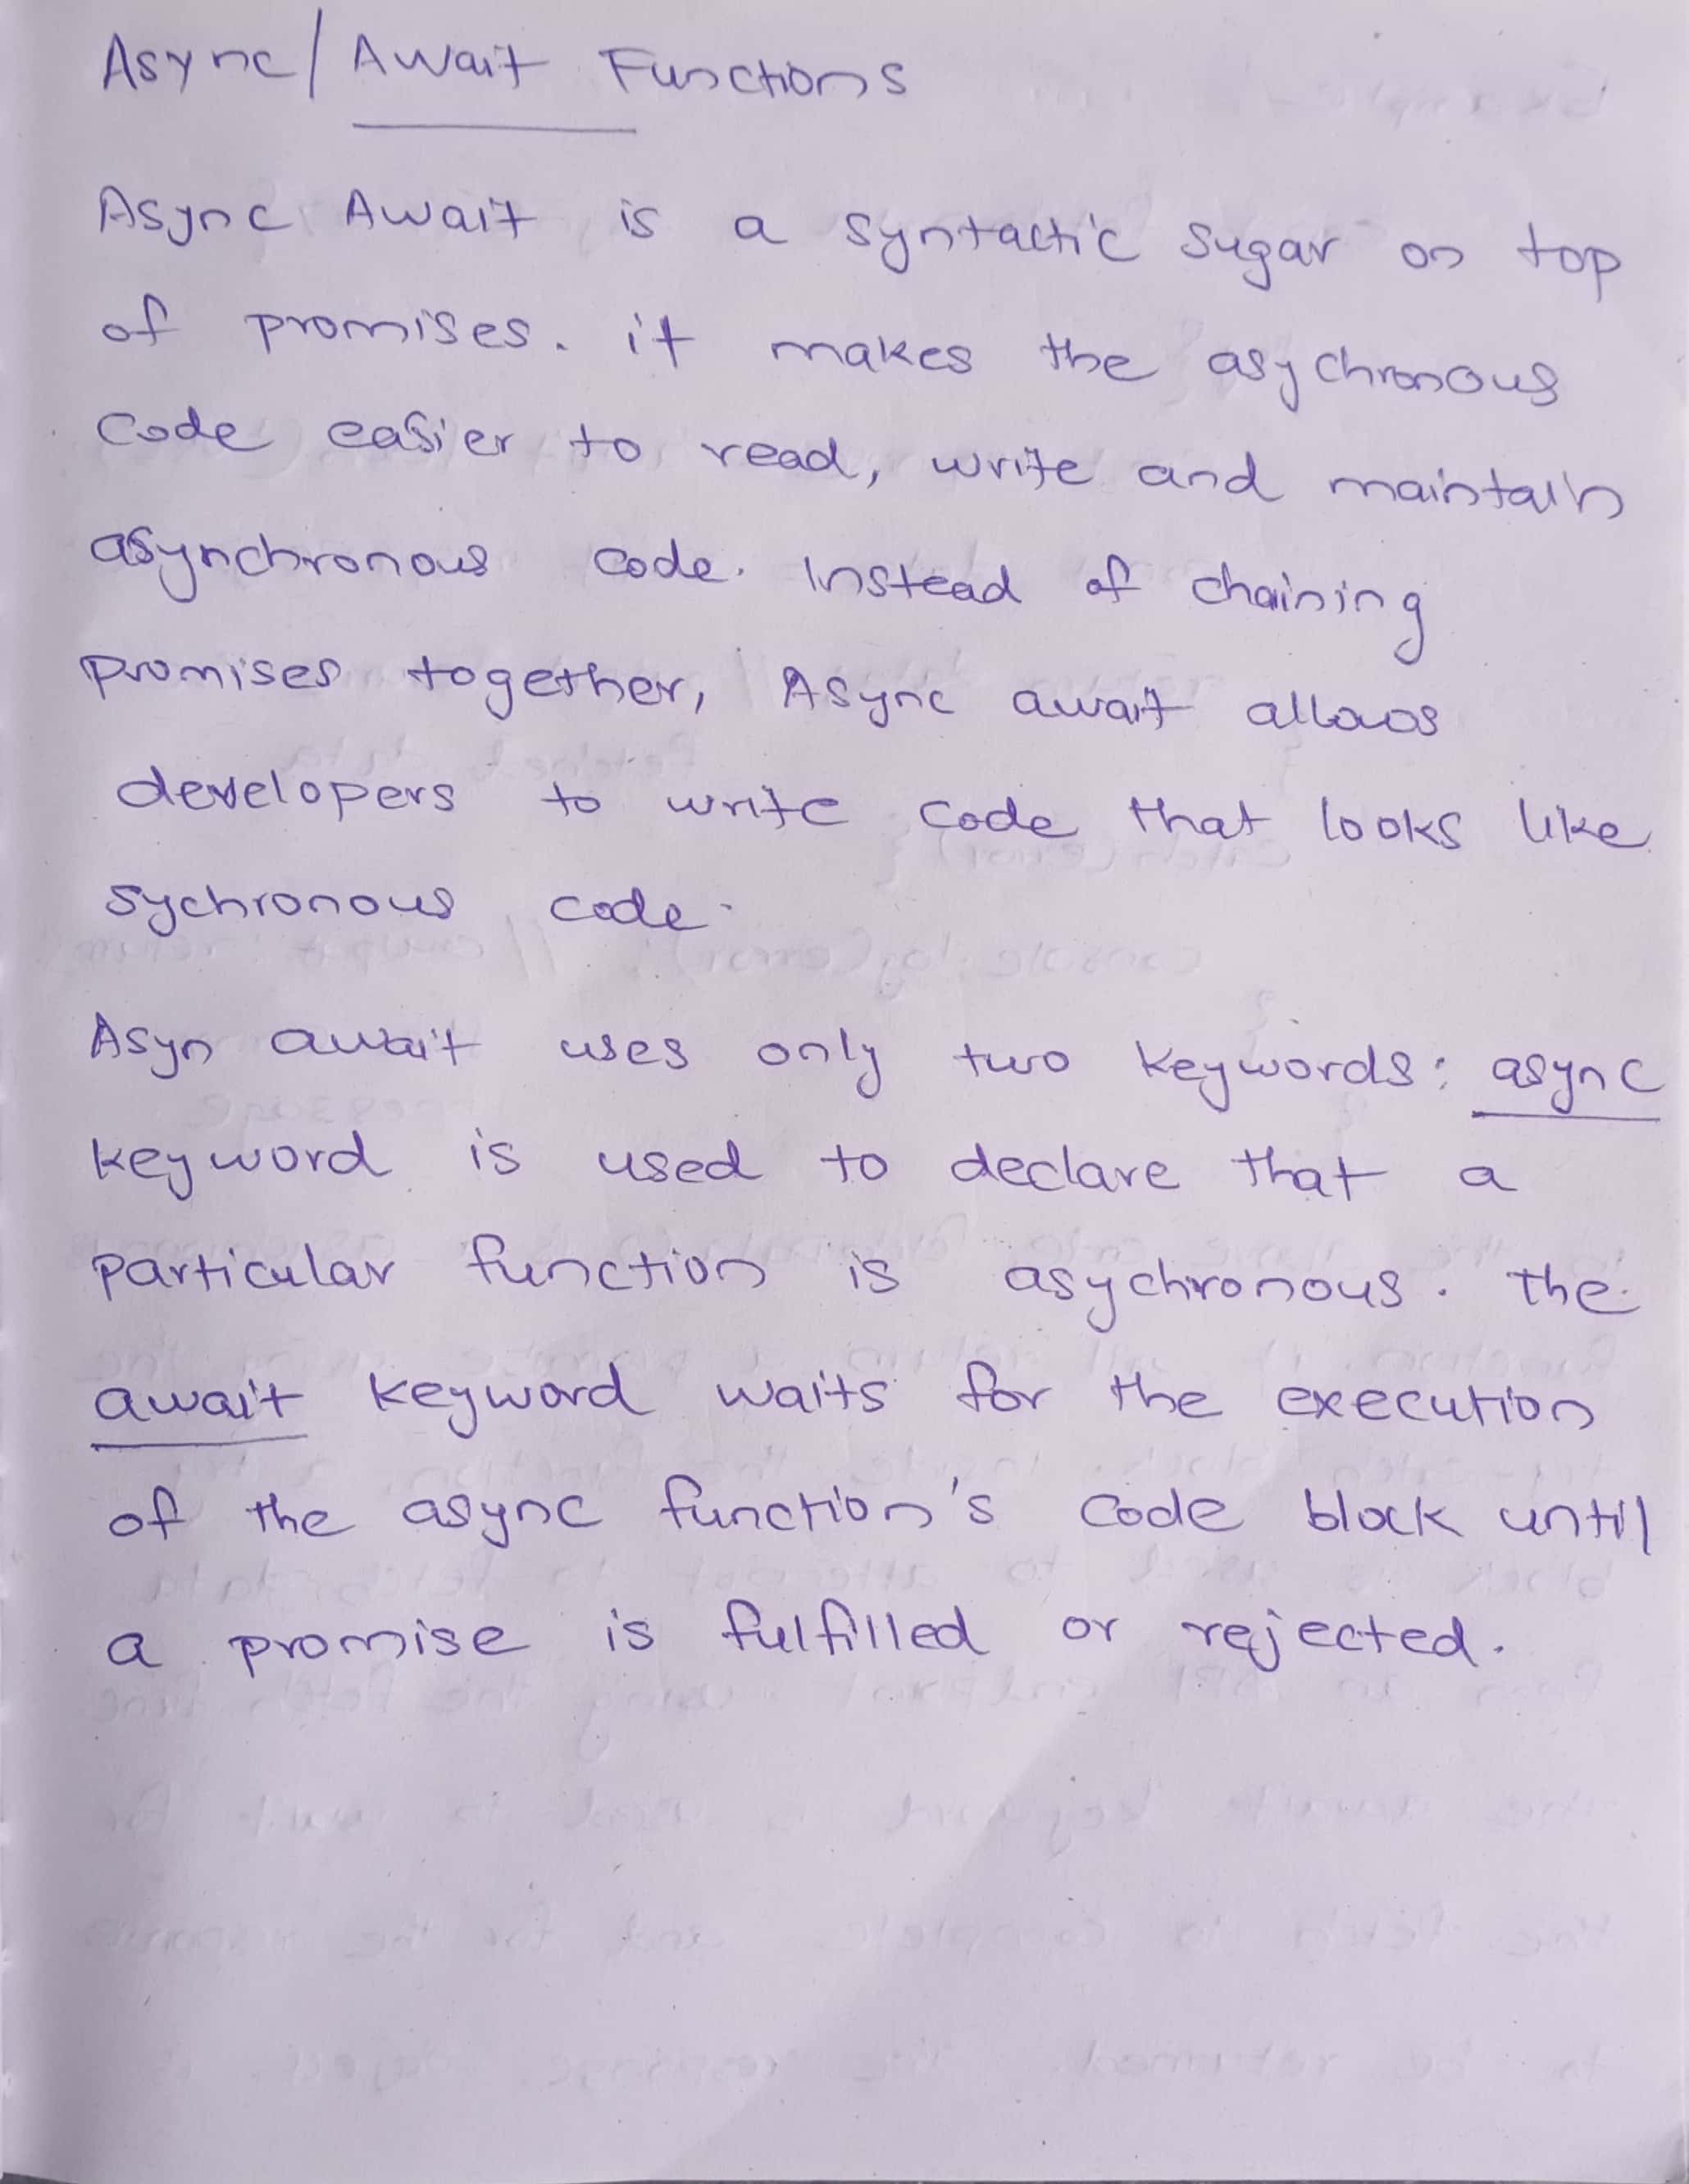 Async/Await Functions
Async Await is a syntactic sugar on top
of promises. it makes the asychronous
code easier to read, write and maintain
asynchronous code. Instead of chaining
promises together, Async await allows
developers to write code that looks like
sychronous code.
Asyn await uses only two keywords: async
keyword is used to declare that a
particular function is asychronous. the
await keyword waits for the execution
of the async function's code block until
a promise is fulfilled or rejected.